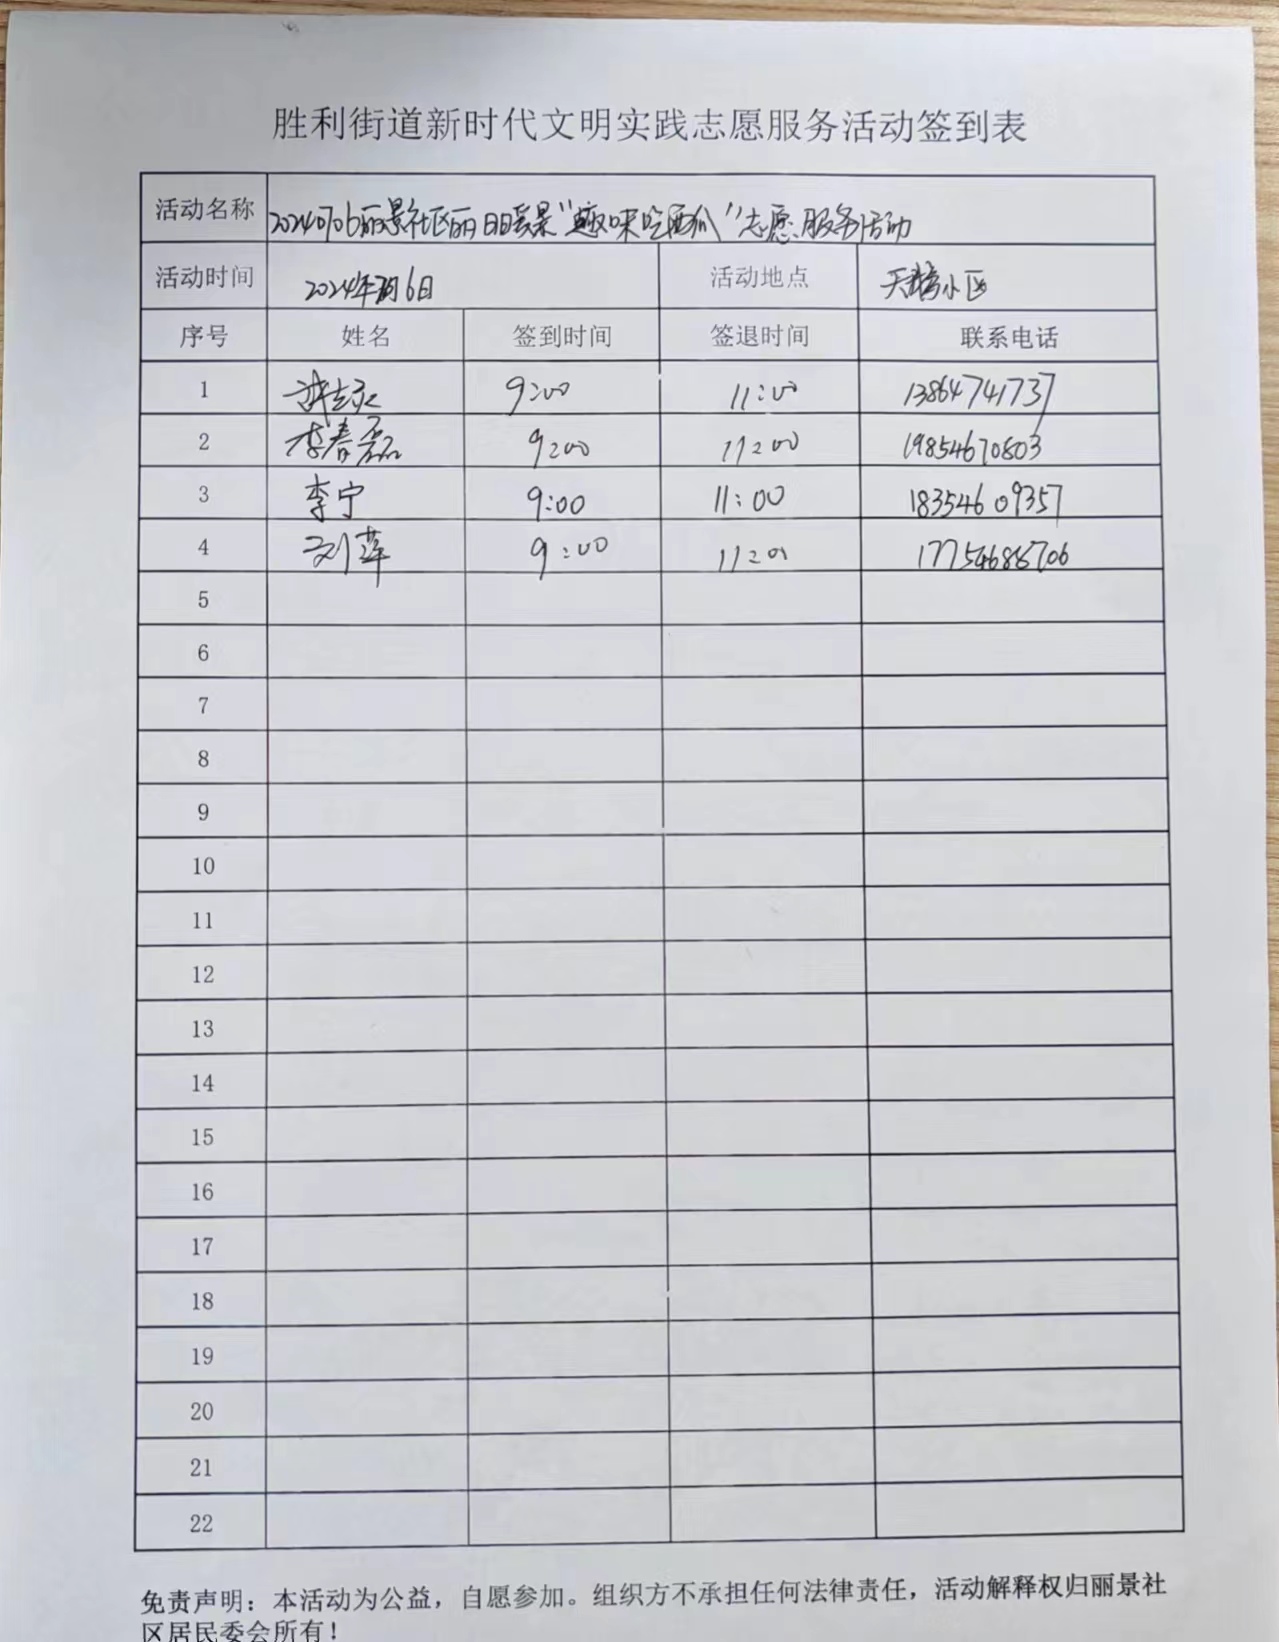 胜利街道新时代文明实践志愿服务活动签到表
活动名称 20240706丽景社区丽日暖景“趣味吃西瓜”志愿服务活动
活动时间 2024年7月6日 活动地点 天鹅小区
序号 姓名 签到时间 签退时间 联系电话
1 9:00 11:00 13864741737
2 李春磊 9:00 11:00 19854670803
3 李宁 9:00 11:00 18354609357
4 刘萍 9:00 11:00 17754686706
5
6
7
8
9
10
11
12
13
14
15
16
17
18
19
20
21
22
免责声明：本活动为公益，自愿参加。组织方不承担任何法律责任，活动解释权归丽景社
区居民委会所有！